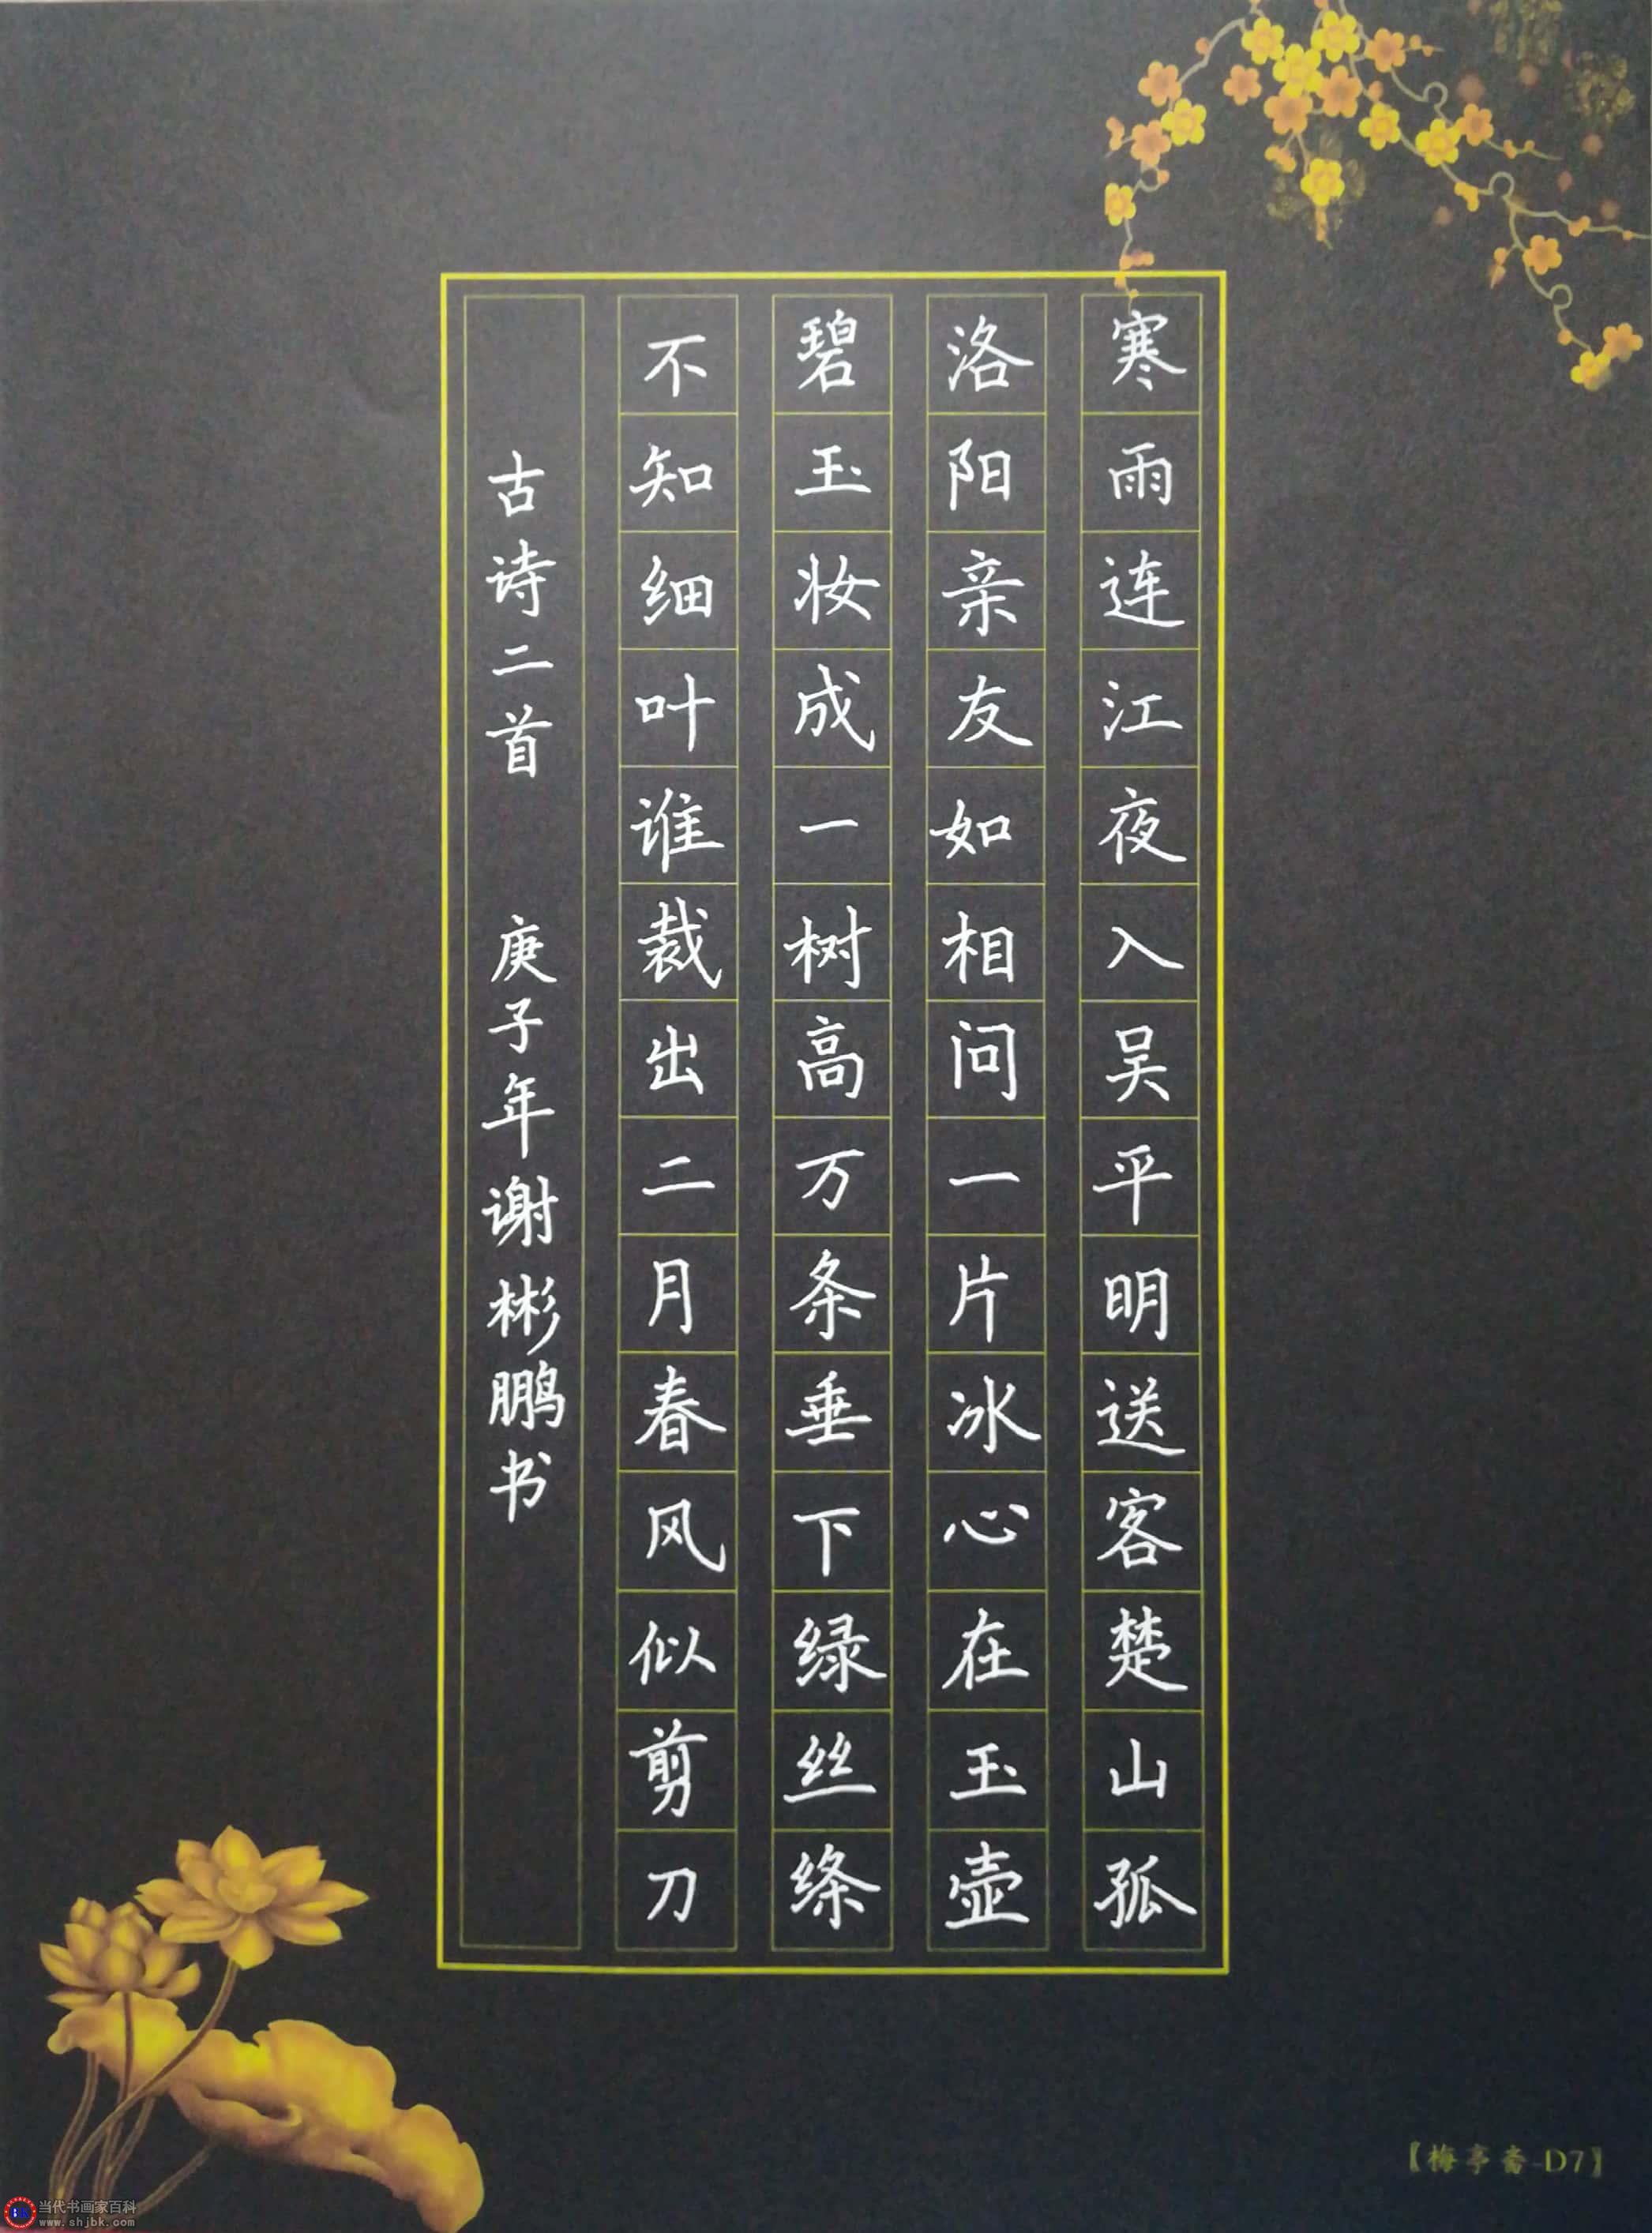 寒雨连江夜入吴平明送客楚山孤
洛阳亲友如相问一片冰心在玉壶
碧玉妆成一树高万条垂下绿丝绦
不知细叶谁裁出二月春风似剪刀
古诗二首 庚子年谢彬鹏书
【梅亭斋-D7】
当代书画家百科
www.shjbk.com